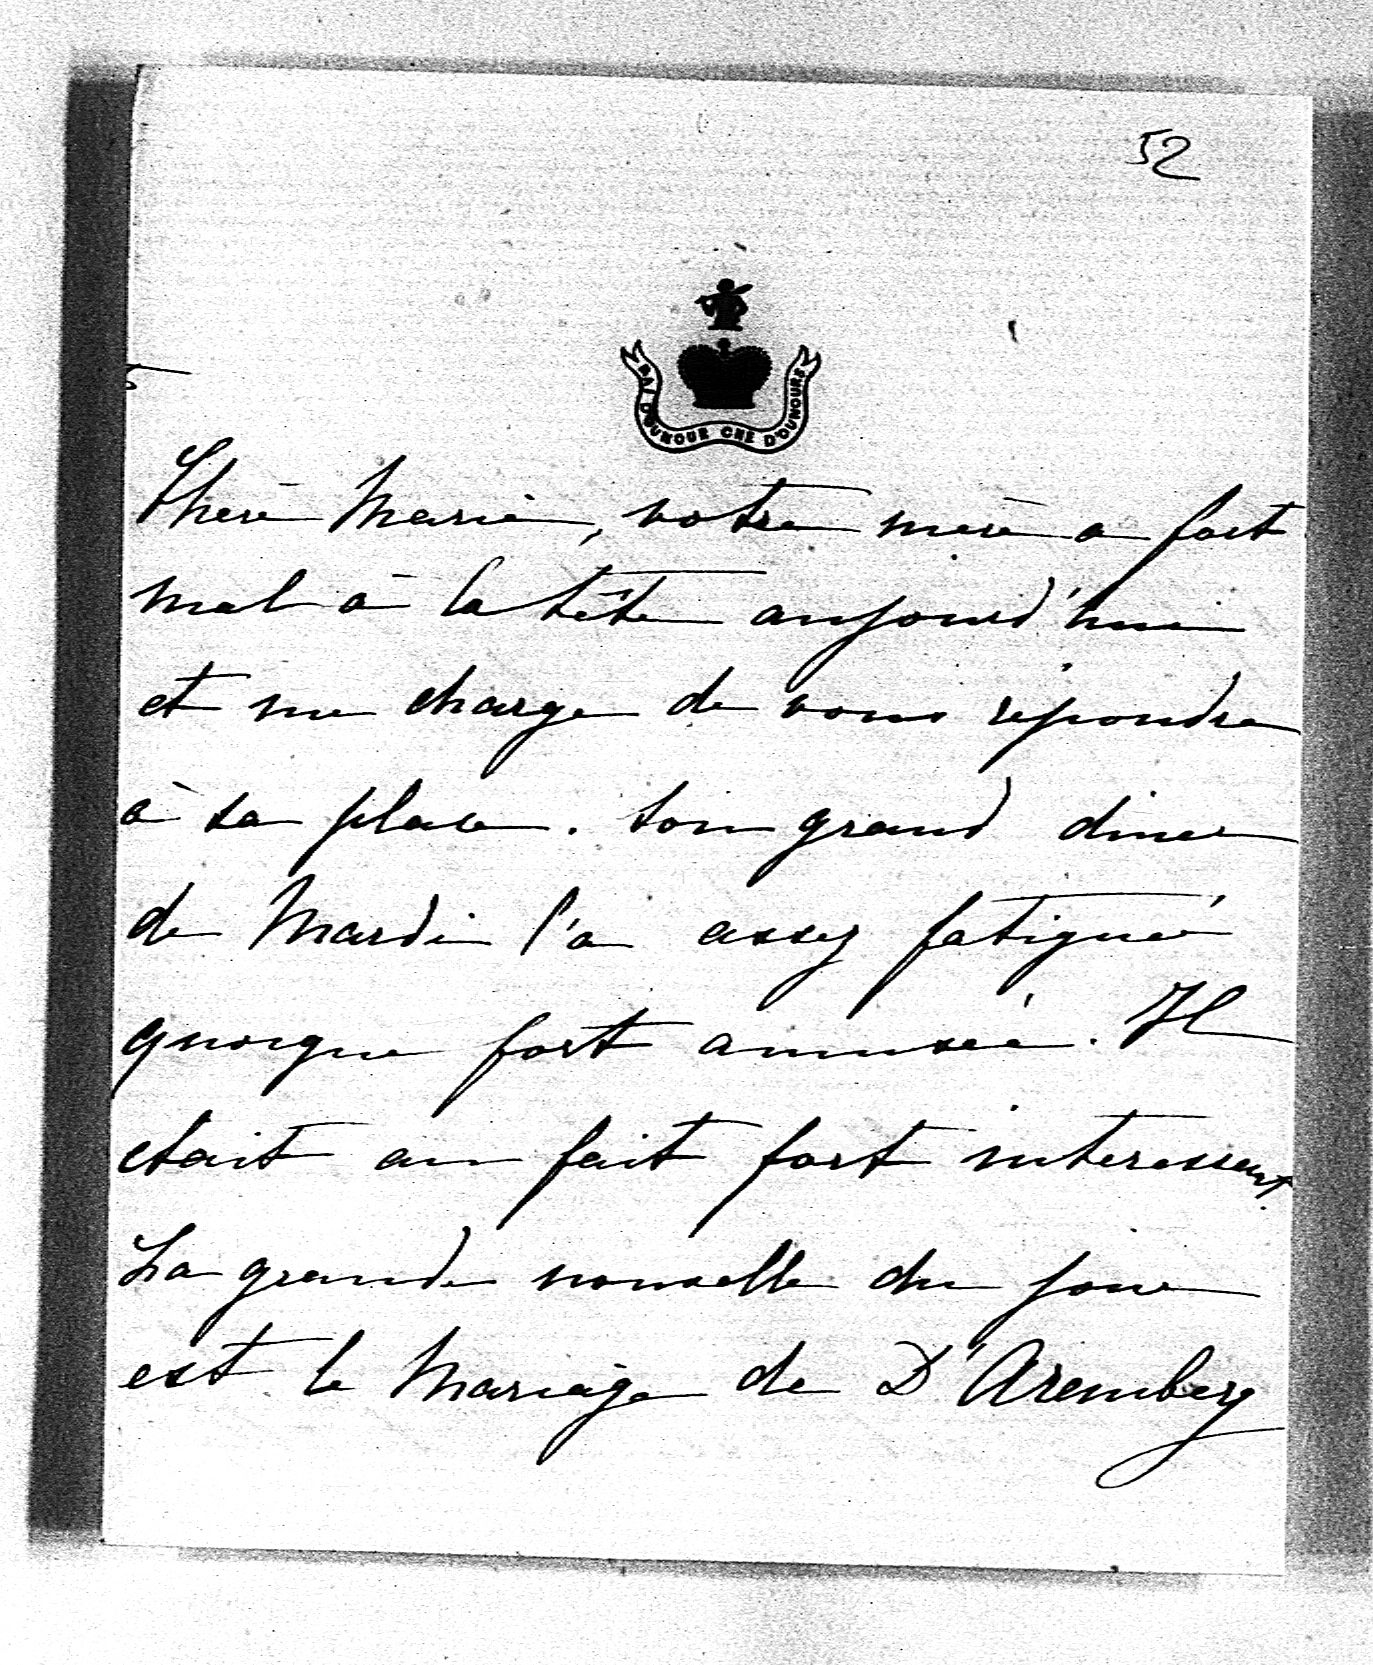 52
PAI D'OUNOUR CHE D'OUNOURS
Chère Marie, votre mère a fort
mal à la tête aujourd'hui
et me charge de vous repondre
à sa place. Son grand diner
de Mardi l'a assez fatiguée
quoique fort amusée. Il
etait au fait fort interessant.
La grande nouvelle du jour
est le Mariage de D'Aremberg